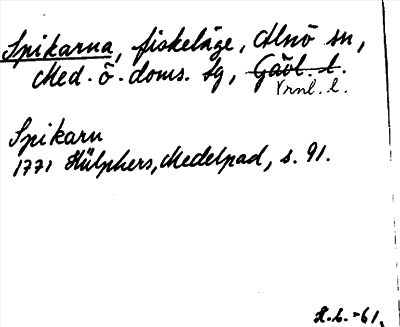 Spikarna, fiskeläge, Alnö sn,
Med. ö. doms. sg, Gävl. l.
Vrnl. l.
Spikarn
1771 Hülphers, Medelpad, s. 91.
H.L. -61.